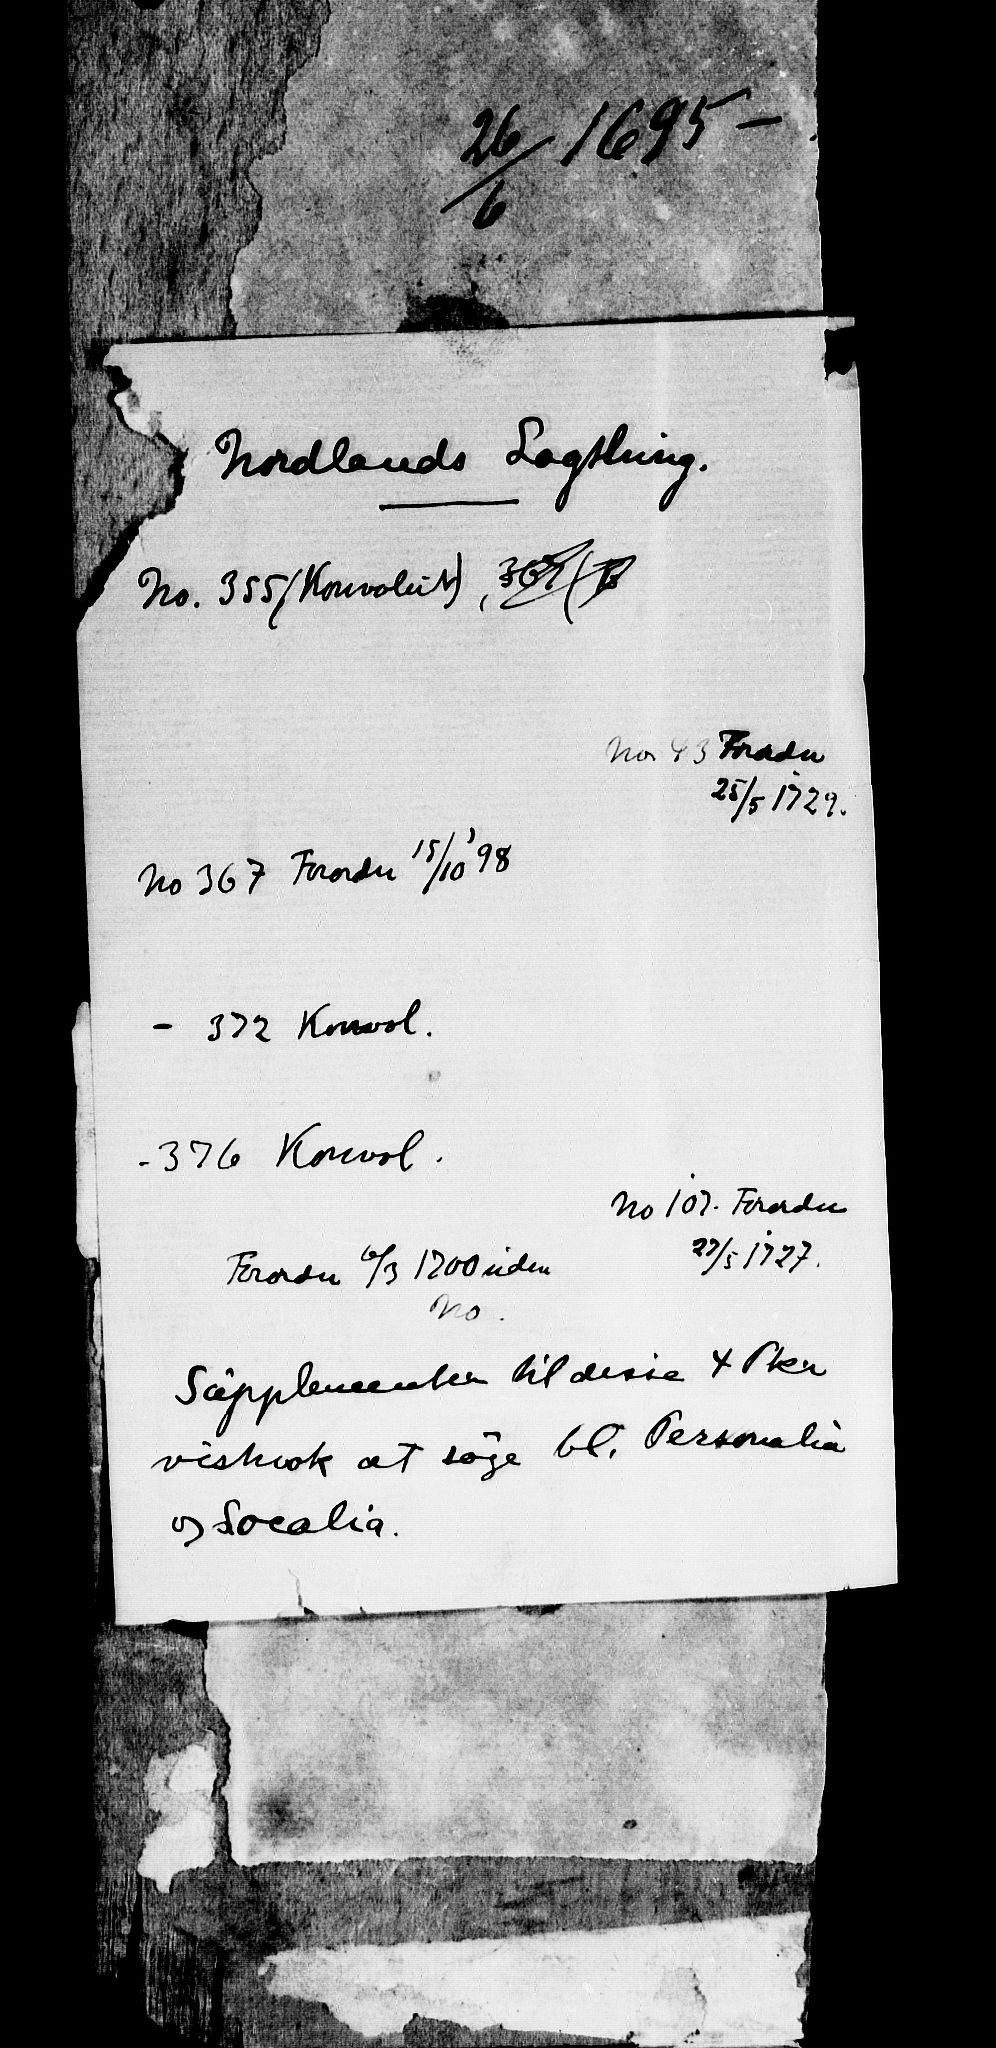 26/6 1695 -
Nordlands Lagthing.
No. 355 (Konvolut),
No 43 Forordn
25/5 1729.
No 367 Forordn 15/10 98
- 372 Konvol.
- 376 Konvol.
No 107. Forordn
27/5 1727.
Forordn 6/3 1700 uden
No.
Supplementer til disse 4 Pker
vistnok at søge bl. Personalia
og Localia.